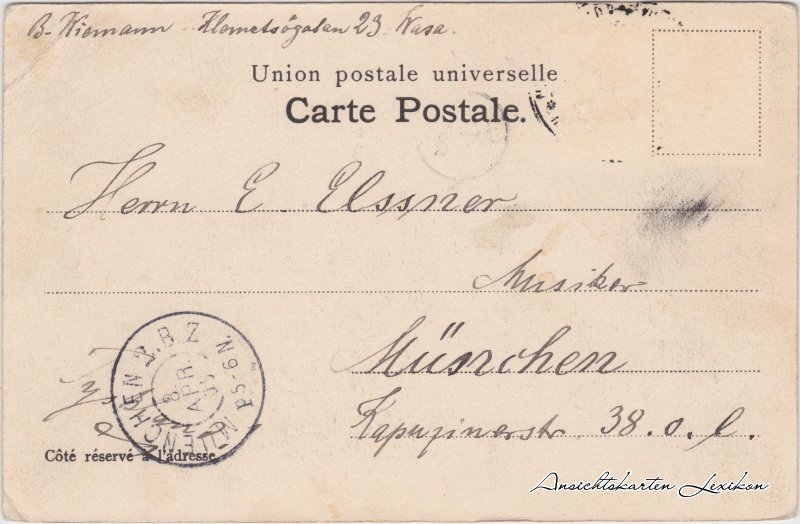 B. Wiemann Wasa.
Union postale universelle
Carte Postale.
Herrn E. Elssner
Musiker
München
Kapuzinerstr. 38. o. l.
MÜNCHEN P. B. Z
8 APR.
N 5-6
Côté réservé à l'adresse
Ansichtskarten Lexikon